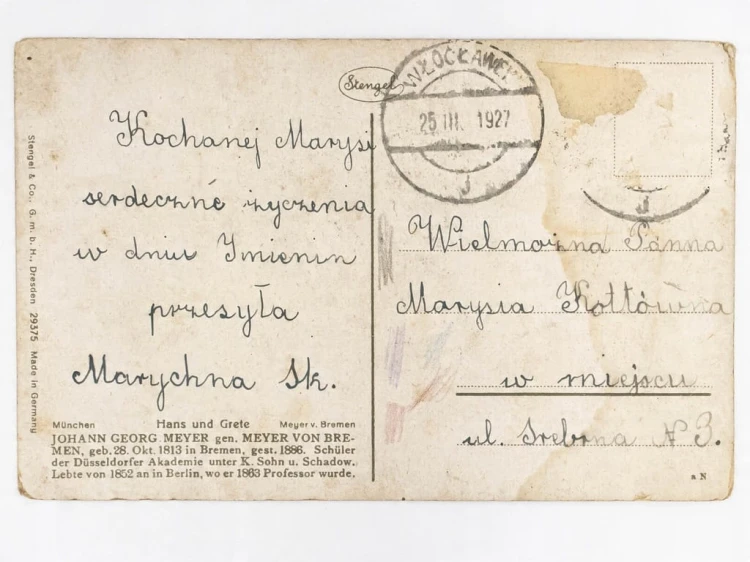 Stengel
WŁOCŁAWEK
25 III. 1927
J
Kochanej Marysi
serdeczne życzenia
w dniu Imienin
przesyła
Marychna Sk.
Wielmożna Panna
Marysia Kołtówna
w miejscu
ul. Srebrna № 3.
Stengel & Co., G. m. b. H., Dresden 29375 Made in Germany
München Hans und Grete Meyer v. Bremen
JOHANN GEORG MEYER gen. MEYER VON BRE-
MEN, geb. 28. Okt. 1813 in Bremen, gest. 1886. Schüler
der Düsseldorfer Akademie unter K. Sohn u. Schadow.
Lebte von 1852 an in Berlin, wo er 1863 Professor wurde.